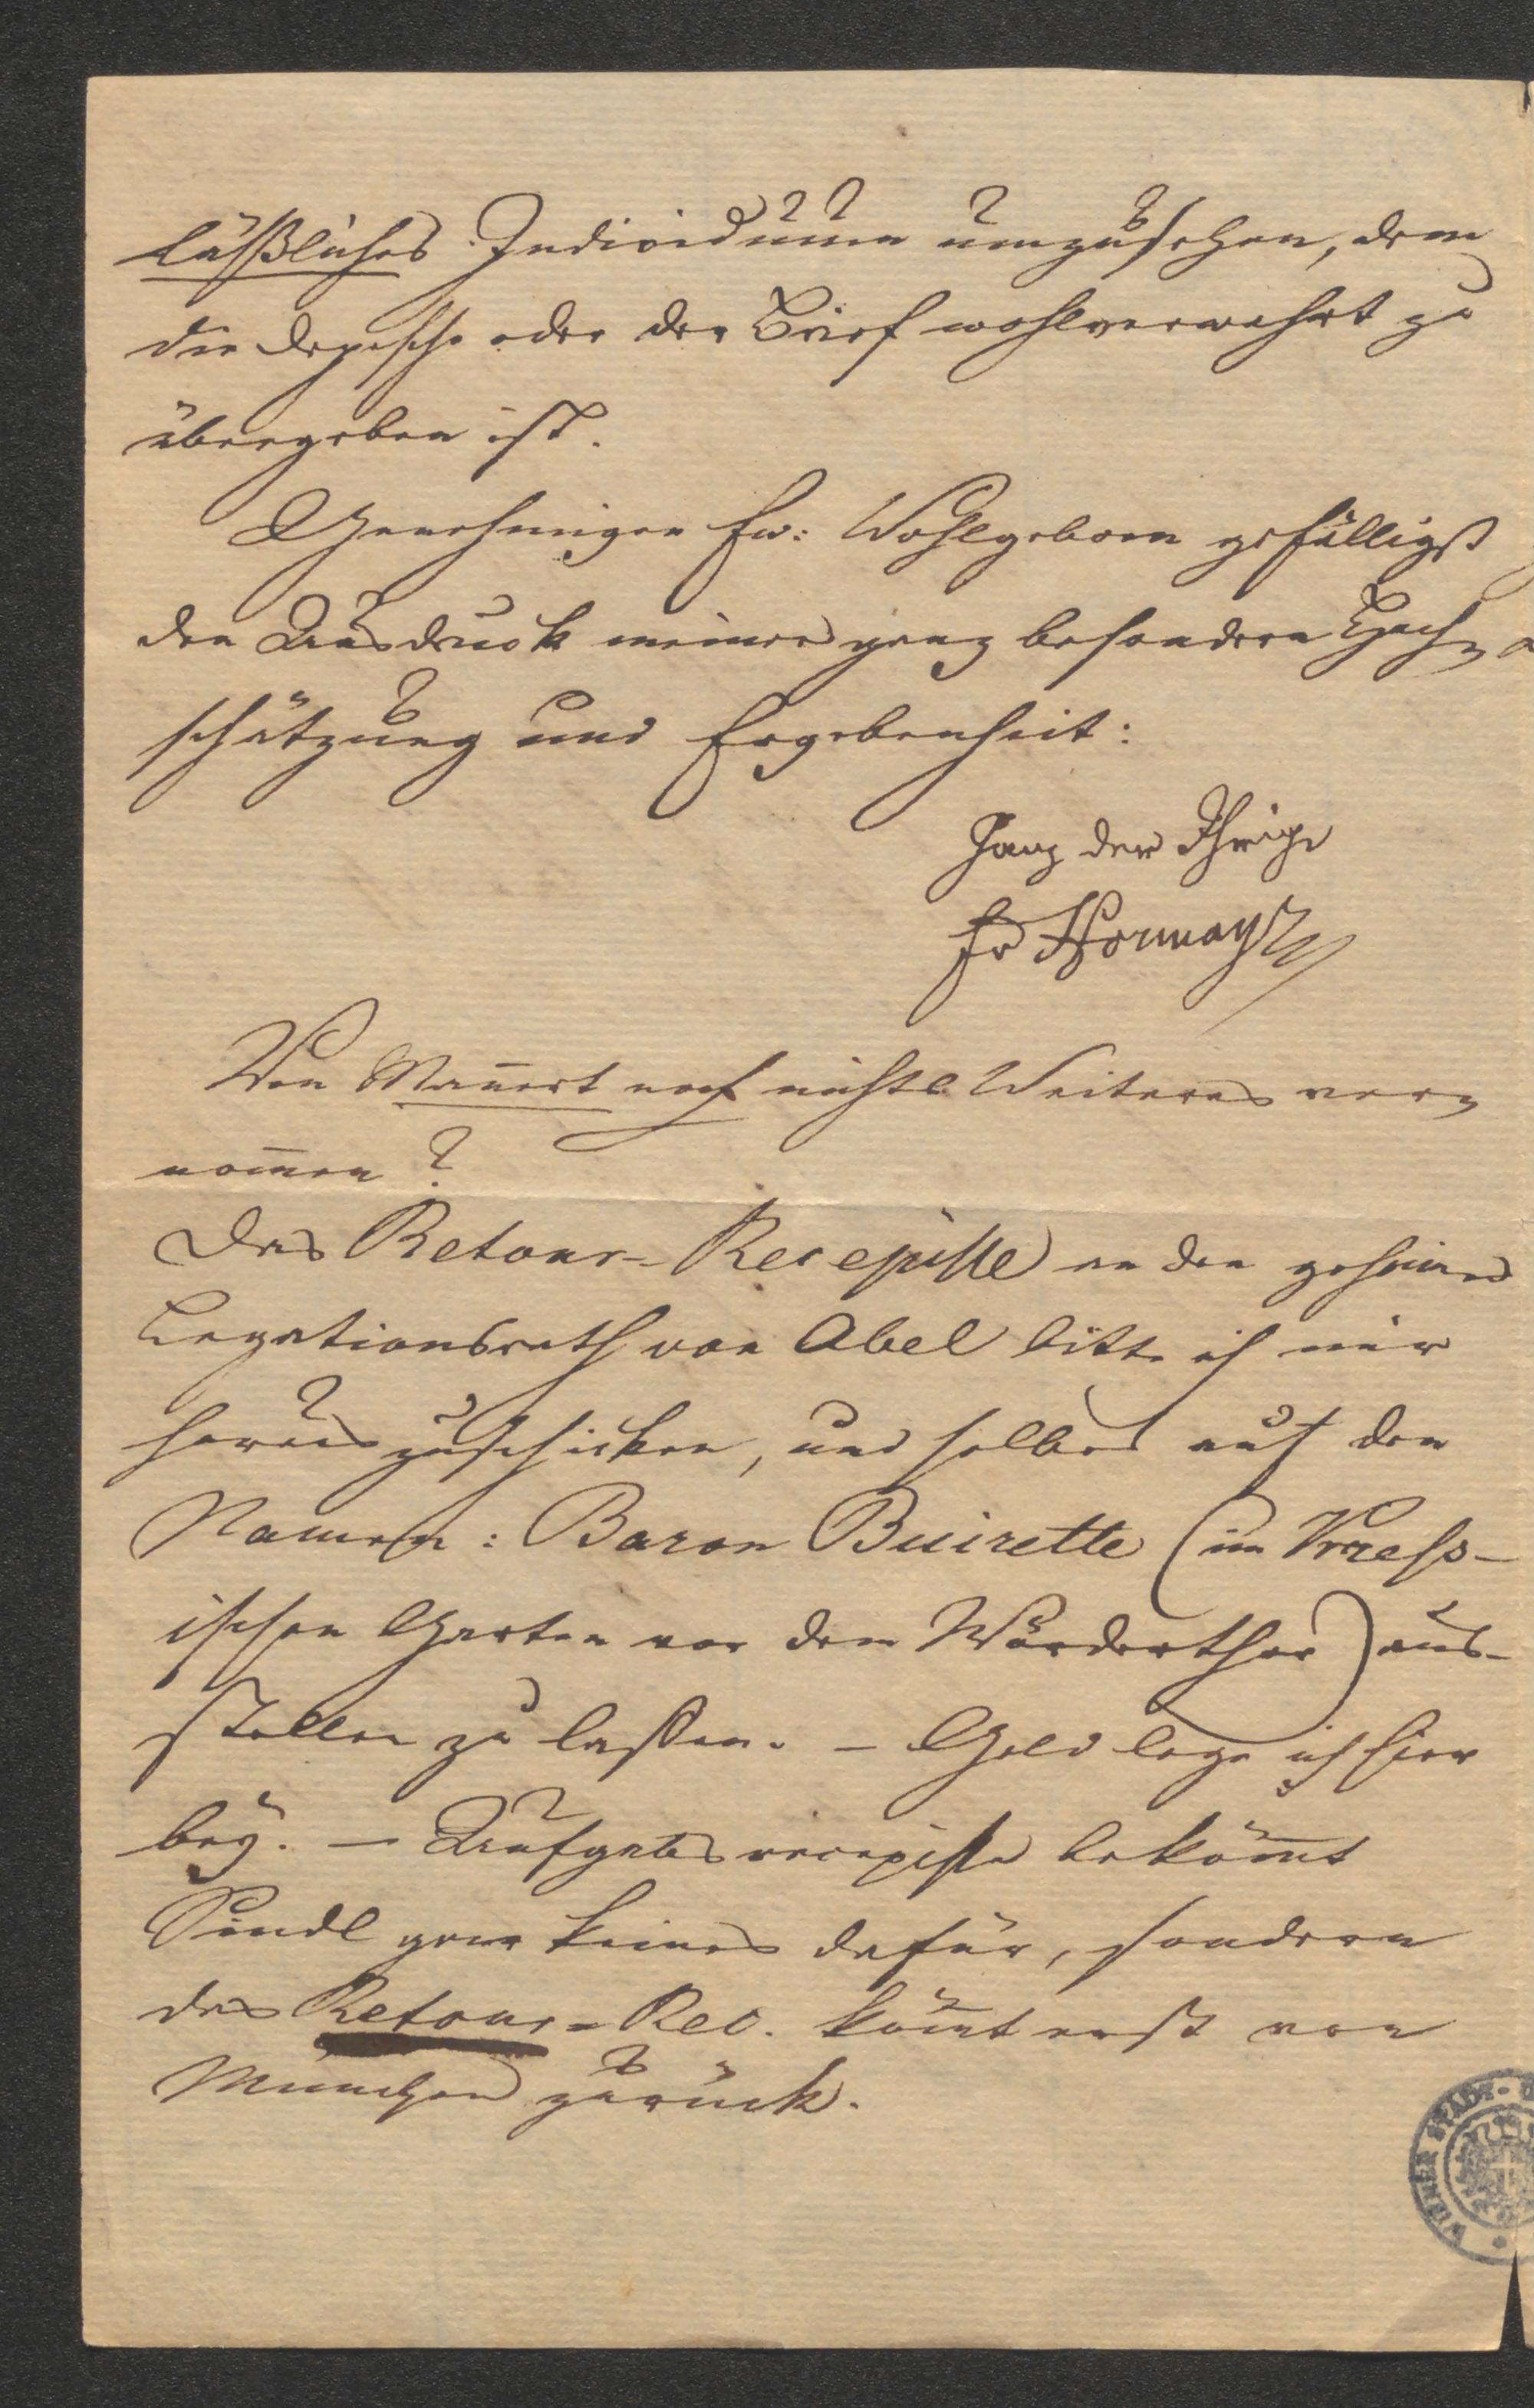 läßliches Individuum umzusehen, dem
die Depesche oder der Brief wohlverwahrt zu
übergeben ist.
Genehmigen Ew: Wohlgeborn gefälligst
den Ausdruck meiner ganz besondern Hoch-
schätzung und Ergebenheit:
Ganz der Ihrige
Fr Hormayr
Von Mañert noch nichts Weiteres ver-
nom̄en?
Das Retour-Recepisse an den geheimen
Legationsrath von Abel bitte ich mir
herauszuschicken, und selbes auf den
Namen: Baron Buirette (im Kress-
ischen Garten vor dem Wörderthor) aus-
stellen zu lassen. – Geld lege ich hier
bey. – Aufgabsrecepisse bekom̄t
gar keines dafür, sondern
das Retour-Rec. kom̄t erst von
München zurück.
WIENER STADT-